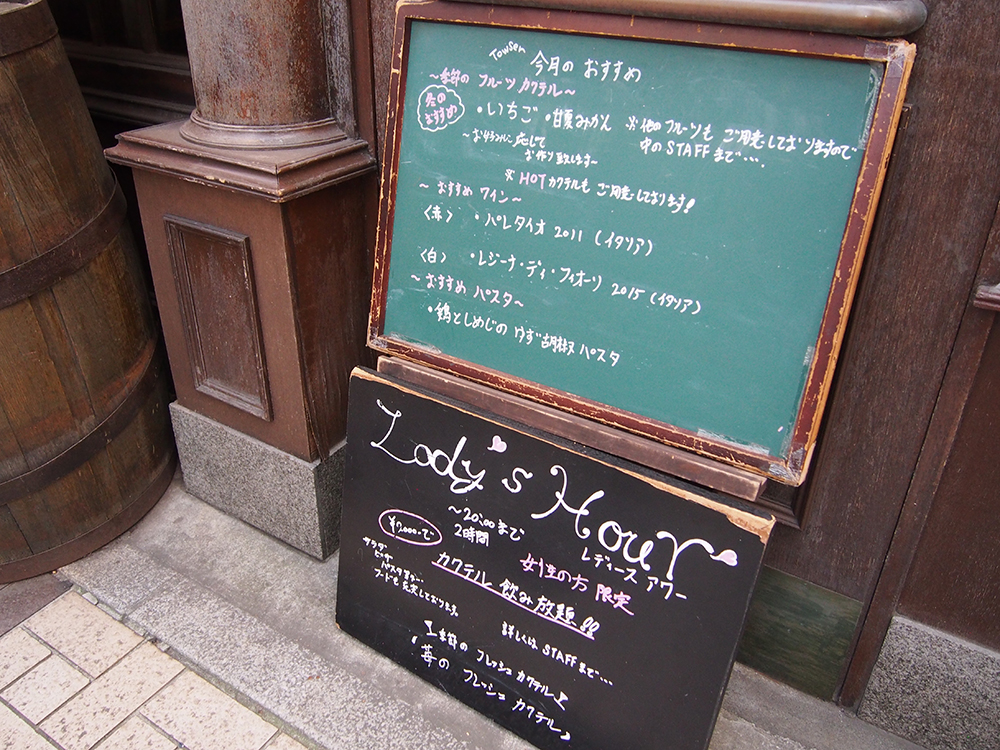 Towser 今月の おすすめ
～季節の フルーツ カクテル～
冬の
おすすめ
・いちご ・甘夏みかん ※他のフルーツも ご用意しておりますので
中の STAFFまで・・・
～お好みに 応じて
お作り致します～
※ HOTカクテルも ご用意しております!
～おすすめ ワイン～
〈赤〉 ・パレタイオ 2011 (イタリア)
〈白〉 ・レジーナ・ディ・フィオーリ 2015 (イタリア)
～おすすめ パスタ～
・鶏としめじの ゆず胡椒パスタ
Lady's Hour
～20:00まで
レディース アワー
2時間
女性の方 限定
カクテル 飲み放題!!
サラダ
ピザ
パスタ
フードも 充実しております。
詳しくは STAFFまで・・・
季節の フレッシュ カクテル
苺の フレッシュ カクテル♪